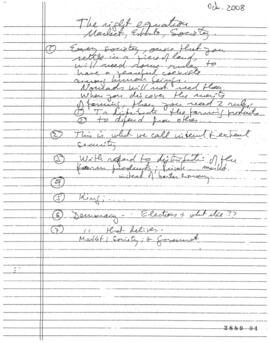 Oct. 2008
The right equation
Market, Events, Society.
① Every society, once that you
settle in a piece of land
will need some rules to
have a peaceful coexists
among human beings.
Nomads will not need them
When you discover the
of farming, then you need 2 rules
① To distribute the farming products
② to defend from others.
② This is what we call internal & external
security
③ With regard to distribution of the
farm products, private market
instead of barter economy.
④
⑤ King;
⑥ Democracy - Elections & what else??
⑦ " that deliver.
Market; Society; & Government
3889 04